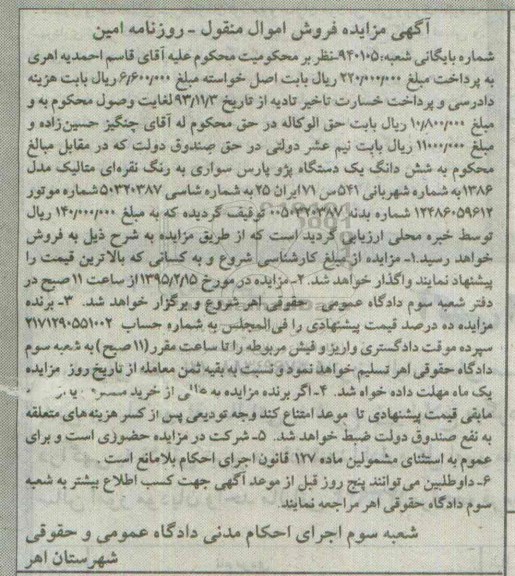 آگهی مزایده فروش اموال منقول - روزنامه امین
شماره بایگانی شعبه:۹۴۰۱۰۵-نظر بر محکومیت محکوم علیه آقای قاسم احمدیه اهری
به پرداخت مبلغ ۲۲۰/۰۰۰/۰۰۰ ریال بابت اصل خواسته مبلغ ۶/۶۰۰/۰۰۰ ریال بابت هزینه
دادرسی و پرداخت خسارت تاخیر تادیه از تاریخ ۹۳/۱۱/۳ لغایت وصول محکوم به و
مبلغ ۱۰/۸۰۰/۰۰۰ ریال بابت حق الوکاله در حق محکوم له آقای چنگیز حسین زاده و
مبلغ ۱۱۰۰۰/۰۰۰ ریال بابت نیم عشر دولتی در حق صندوق دولت که در مقابل مبالغ
محکوم به شش دانگ یک دستگاه پژو پارس سواری به رنگ نقره‌ای متالیک مدل
۱۳۸۶ به شماره شهربانی ۵۴۱س ۷۱ ایران ۲۵ به شماره شاسی ۵۰۳۲۰۳۸۷ شماره موتور
۱۲۴۸۶۰۵۹۶۱۲ شماره بدنه ۰۰۵۰۳۲۰۳۸۷ توقیف گردیده که به مبلغ ۱۴۰/۰۰۰/۰۰۰ ریال
توسط خبره محلی ارزیابی گردید است که از طریق مزایده به شرح ذیل به فروش
خواهد رسید.۱- مزایده از مبلغ کارشناسی شروع و به کسانی که بالاترین قیمت را
پیشنهاد نمایند واگذار خواهد شد. ۲-مزایده در مورخ ۱۳۹۵/۲/۱۵ از ساعت ۱۱ صبح در
دفتر شعبه سوم دادگاه عمومی و حقوقی اهر شروع و برگزار خواهد شد. ۳- برنده
مزایده ده درصد قیمت پیشنهادی را فی المجلس به شماره حساب ۲۱۷۱۲۹۰۵۵۱۰۰۲
سپرده موقت دادگستری واریز و فیش مربوطه را تا ساعت مقرر (۱۱ صبح) به شعبه سوم
دادگاه حقوقی اهر تسلیم خواهد نمود و نسبت به بقیه ثمن معامله از تاریخ روز مزایده
یک ماه مهلت داده خواه شد. ۴-اگر برنده مزایده به از خرید
مابقی قیمت پیشنهادی تا موعد امتناع کند وجه تودیعی پس از کسر هزینه های متعلقه
به نفع صندوق دولت ضبط خواهد شد. ۵- شرکت در مزایده حضوری است و برای
عموم به استثنای مشمولین ماده ۱۲۷ قانون اجرای احکام بلامانع است .
۶- داوطلبین می توانند پنج روز قبل از موعد آگهی جهت کسب اطلاع بیشتر به شعبه
سوم دادگاه حقوقی اهر مراجعه نمایند.
شعبه سوم اجرای احکام مدنی دادگاه عمومی و حقوقی
شهرستان اهر